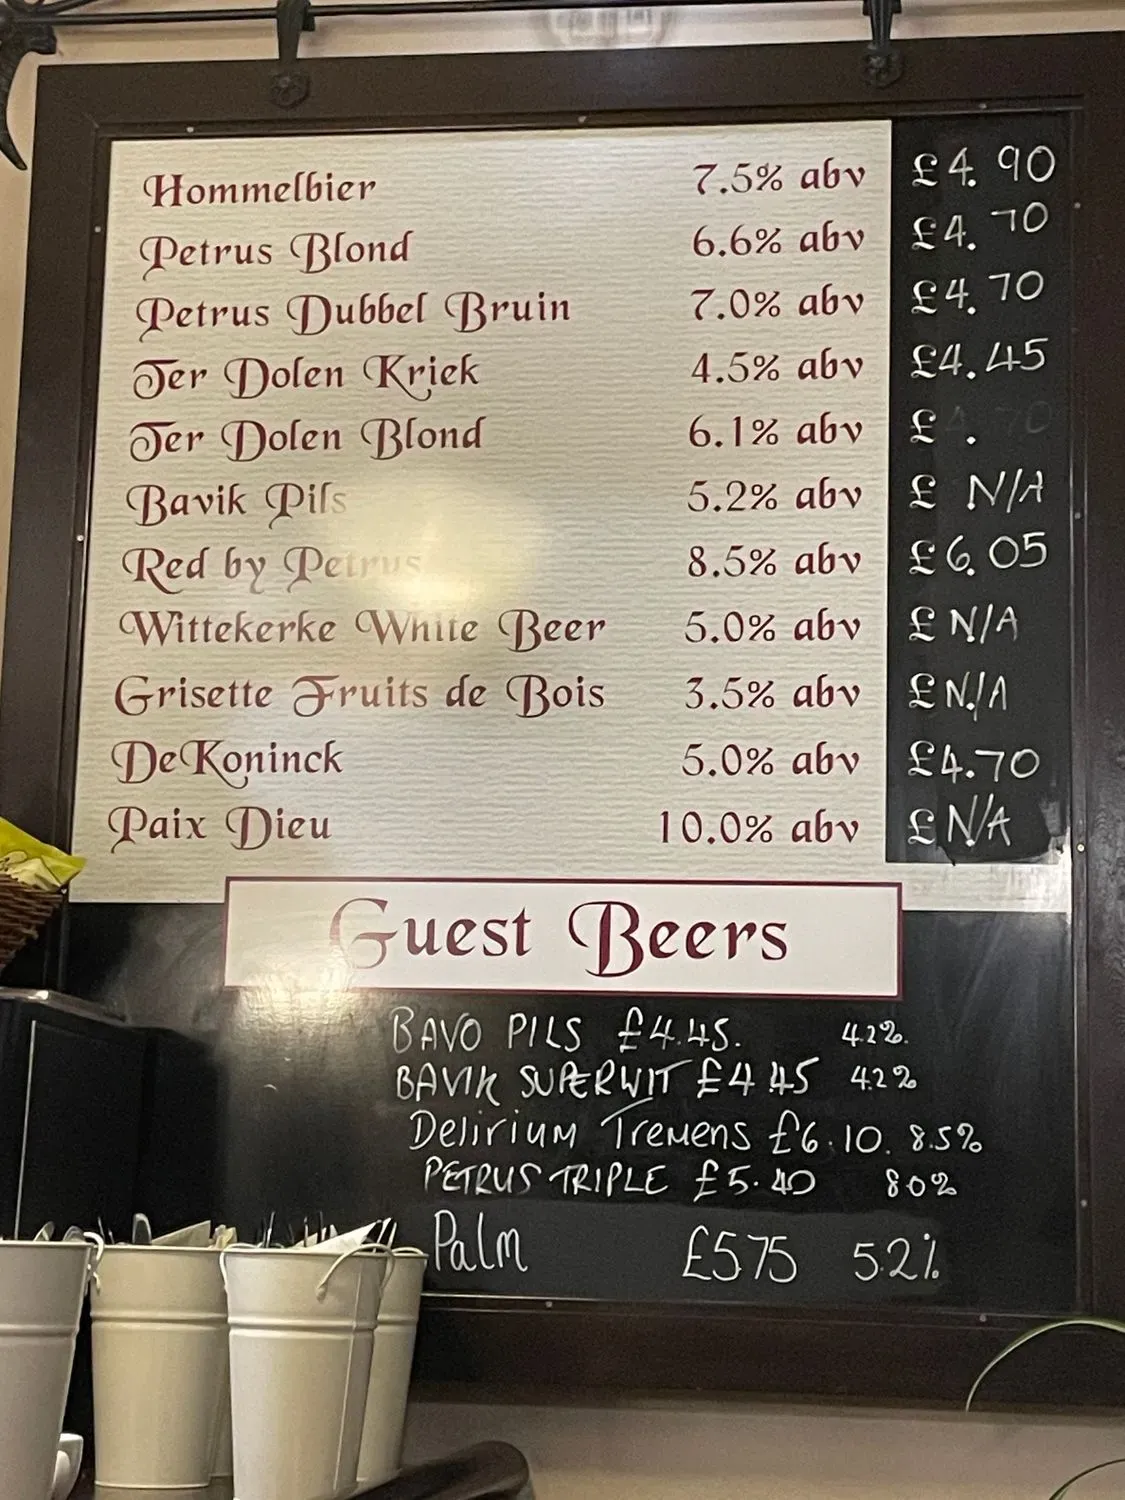 Hommelbier 7.5% abv £4.90
Petrus Blond 6.6% abv £4.70
Petrus Dubbel Bruin 7.0% abv £4.70
Ter Dolen Kriek 4.5% abv £4.45
Ter Dolen Blond 6.1% abv £ .
Bavik Pils 5.2% abv £ N/A
Red by Petrus 8.5% abv £6.05
Wittekerke White Beer 5.0% abv £N/A
Grisette Fruits de Bois 3.5% abv £N/A
DeKoninck 5.0% abv £4.70
Paix Dieu 10.0% abv £N/A
Guest Beers
BAVO PILS £4.45. 4.2%.
BAVIK SUPERWIT £4 45 4.2%
Delirium Tremens £6.10. 8.5%
PETRUS TRIPLE £5.40 80%
Palm £575 52%